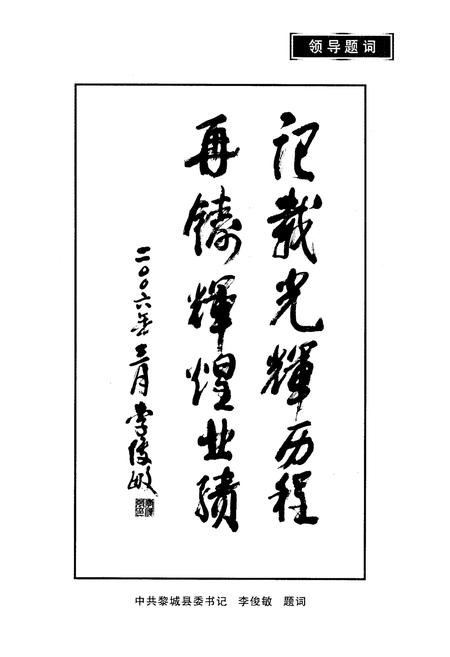 领导题词
记载光輝历程
再铸輝煌业绩
二〇〇六年三月李俊敏
中共黎城县委书记 李俊敏 题词